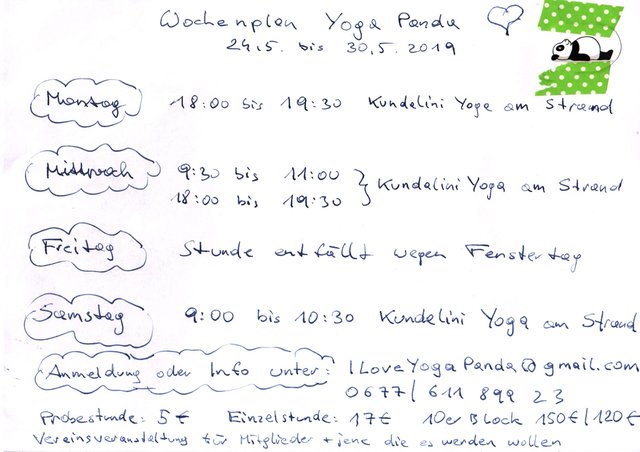 Wochenplan Yoga Panda
24.5. bis 30.5.2019
Montag 18:00 bis 19:30 Kundalini Yoga am Strand
Mittwoch 9:30 bis 11:00
18:00 bis 19:30 } Kundalini Yoga am Strand
Freitag Stunde entfällt wegen Fenstertag
Samstag 9:00 bis 10:30 Kundalini Yoga am Strand
Anmeldung oder Info unter: ILoveYogaPanda@gmail.com
0677/ 611 899 23
Probestunde: 5€ Einzelstunde: 17€ 10er Block 150€/120€
Vereinsveranstaltung für Mitglieder + jene die es werden wollen